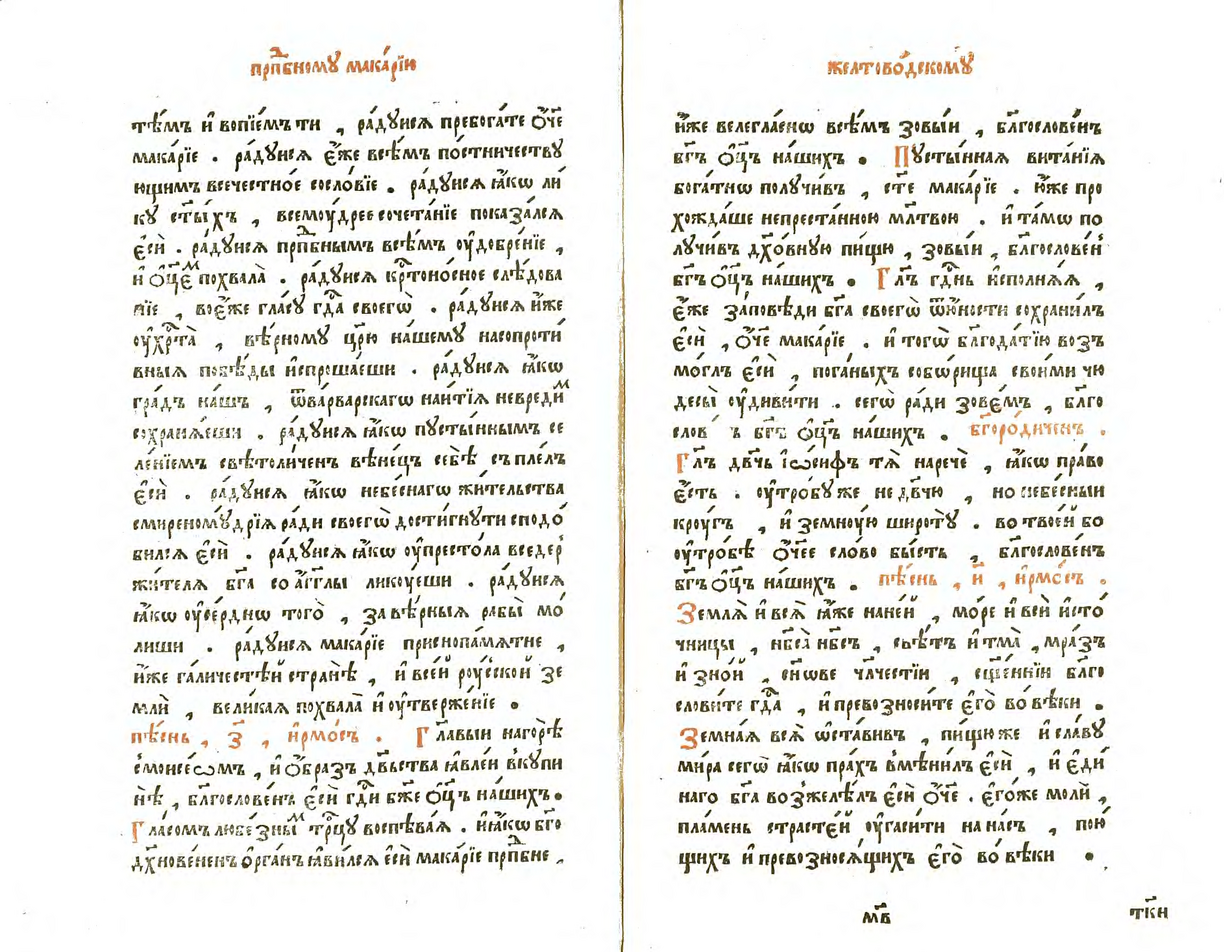 прпⷣбному мака́рїю
тѣ́мъ и҆ вопїе́мъ ти , ра́дꙋисѧ пребога́те ѻ҆́ч҃е
мака́рїе . ра́дꙋисѧ є҆́же всѣ́мъ по́стничествꙋ
ющимъ всечестно́е сосло́вїе . ра́дꙋисѧ ꙗ҆́кѡ ли
кꙋ̀ ст҃ы́хъ , всемоу́дрее сочета́нїе показа́лсѧ
є҆сѝ . ра́дꙋисѧ прпⷣбнымъ всѣ́мъ оу҆добре́нїе ,
и҆ ѻ҆ц҃є́ⷨ похвала̀ . ра́дꙋисѧ крⷭ҇тоно́сное слѣ́дова
нїе , воє҆́же гла́сꙋ гдⷭ҇а своегѡ̀ . ра́дꙋисѧ и҆́же
оу҆хрⷭ҇та̀ , вѣ́рномꙋ цр҃ю на́шемꙋ насопроти́
вныѧ побѣ́ды и҆спроша́еши . ра́дꙋисѧ ꙗ҆́кѡ
гра́дъ на́шъ , ѿварварскагѡ наи́тїѧ невреди́ⷨ
сохранѧ́еши . ра́дꙋисѧ ꙗ҆́кѡ пꙋсты́ннымъ се
ле́нїемъ свѣтоли́ченъ вѣне́цъ себѣ̀ съпле́лъ
є҆сѝ . ра́дꙋисѧ ꙗ҆́кѡ небе́снагѡ жи́тельства
смиреномꙋ́дрїѧ ра́ди своегѡ̀ дости́гнꙋти сподо́
билсѧ є҆сѝ . ра́дꙋисѧ ꙗ҆́кѡ оу҆престо́ла вседер
жи́телѧ бг҃а со а҆́гг҃лы ликоу́еши . ра́дꙋисѧ
ꙗ҆́кѡ оу҆се́рднѡ того̀ , за вѣ́рныѧ рабы̀ мо́
лиши . ра́дꙋисѧ мака́рїе приснопа́мѧтне ,
и҆́же га́личестѣй странѣ̀ , и҆ всей роу́сской зе
млѝ , вели́каѧ похвала̀ и҆ оу҆твержє́нїе .
пѣ́снь , з҃ , і҆рмо́съ . Гла́выи нагорѣ̀
смоисе́ѡмъ , и҆ ѻ҆́бразъ дв҃ьства ꙗ҆вле́и вкꙋпи
нѣ̀ , бл҃гослове́нъ є҆сѝ гдⷭ҇и бж҃е ѻ҆ц҃ъ на́шихъ .
Гла́сомъ любе́зныⷨ трⷪ҇цꙋ воспѣва́ѧ . и҆ ꙗ҆́кѡ бг҃о
дх҃нове́ненъ ѻ҆рга́нъ ꙗ҆ви́лсѧ є҆сѝ мака́рїе прпⷣбне ,
желтово́дскомꙋ
и҆́же велегла́снѡ всѣ́мъ зовы́и , бл҃гослове́нъ
бг҃ъ ѻ҆ц҃ъ на́шихъ . Пꙋсты́ннаѧ вита́нїѧ
бога́тнѡ полꙋчи́въ , ст҃е мака́рїе . ю҆́же про
хожда́ше непреста́нною мл҃твою . и҆ та́мѡ по
лꙋчи́въ дх҃о́внꙋю пи́щꙋ , зовы́и , бл҃гослове́нъ
бг҃ъ ѻ҆ц҃ъ на́шихъ . Гл҃ъ гдⷭ҇нь и҆сполнѧ́ѧ ,
є҆́же за́повѣди бг҃а своегѡ̀ ѿю҆́ности сохрани́лъ
є҆сѝ , ѻ҆́ч҃е мака́рїе . и҆ тогѡ̀ бл҃года́тїю возъ
мо́глъ є҆сѝ , пога́ныхъ собѡ́рища свои́ми чю
десы̀ оу҆диви́ти . сегѡ̀ ра́ди зове́мъ , бл҃го
слов ъ бг҃ъ ѻ҆ц҃ъ на́шихъ . бг҃оро́диченъ .
Гл҃ъ дв҃чь і҆ѡ́сифъ тѧ̀ наречѐ , ꙗ҆́кѡ пра́во
є҆́сть . оу҆тро́бꙋ же не дв҃чю , но небе́сныи
кроу́гъ , и҆ земноу́ю широтꙋ̀ . во твоей бо
оу҆тро́бѣ ѻ҆́ч҃ее сло́во бы́сть , бл҃гослове́нъ
бг҃ъ ѻ҆ц҃ъ на́шихъ . пѣ́снь , и҃ , і҆рмо́съ .
Землѧ̀ и҆ всѧ̀ ꙗ҆́же на не́й , мо́ре и҆ вси и҆сто́
чницы , нб҃са̀ нб҃съ , свѣ́тъ и҆ тма̀ , мра́зъ
и҆ зно́й , сн҃ове чл҃честїи , сщ҃е́ннїи бл҃го
слови́те гдⷭ҇а , и҆ превозноси́те є҆го̀ во́ вѣки .
Земна́ѧ всѧ̀ ѡ҆ста́вивъ , пи́щꙋ же и҆ сла́вꙋ
ми́ра сегѡ̀ ꙗ҆́кѡ пра́хъ вмѣни́лъ є҆сѝ , и҆ є҆ди́
наго бг҃а возжелѣ́лъ є҆сѝ ѻ҆́ч҃е . є҆го́же молѝ ,
пла́мень страсте́й оу҆гаси́ти на на́съ , пою́
щихъ и҆ превозносѧ́щихъ є҆го̀ во́ вѣки .
мв҃
тк҃и